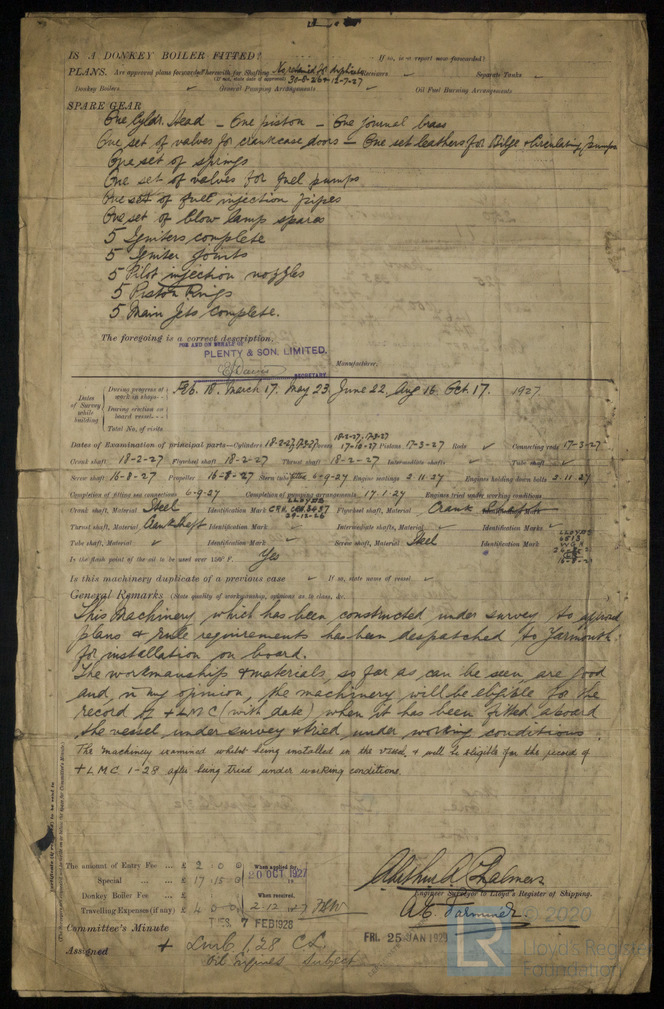 IS A DONKEY BOILER FITTED? If so, is a report now forwarded?
PLANS. Are approved plans forwarded herewith for Shafting No retained for duplicate Receivers ✓ Separate Tanks ✓
(If not, state date of approval) 30-8-26 & 12-7-27
Donkey Boilers ✓ General Pumping Arrangements ✓ Oil Fuel Burning Arrangements
SPARE GEAR
One Cyldr. Head – One piston – One journal brass
One set of valves for crankcase doors – One set leathers for Bilge & Circulating pumps
One set of springs
One set of valves for fuel pumps
One set of fuel injection pipes
One set of blow lamp spares
5 Igniters complete
5 Igniter joints
5 Pilot injection nozzles
5 Piston Rings
5 Main Jets complete.
The foregoing is a correct description,
FOR AND ON BEHALF OF
PLENTY & SON, LIMITED.
SECRETARY Manufacturer.
Dates of Survey while building
During progress of work in shops - - Feb. 18. March 17. May 23. June 22. Aug 16. Oct. 17. 1927
During erection on board vessel - - -
Total No. of visits
Dates of Examination of principal parts—Cylinders 18-2-27, 17-3-27 Covers 18-2-27, 17-3-27 17-10-27 Pistons 17-3-27 Rods ✓ Connecting rods 17-3-27
Crank shaft 18-2-27 Flywheel shaft 18-2-27 Thrust shaft 18-2-27 Intermediate shafts ✓ Tube shaft ✓
Screw shaft 16-8-27 Propeller 16-8-27 Stern tube 6-9-27 Engine seatings 2.11.27 Engines holding down bolts 2.11.27
Completion of fitting sea connections 6-9-27 Completion of pumping arrangements 17.1.27 Engines tried under working conditions
Crank shaft, Material Steel Identification Mark LLOYDS Flywheel shaft, Material Crank Identification Mark
29-12-26
Thrust shaft, Material Crankshaft Identification Mark ✓ Intermediate shafts, Material ✓ Identification Marks ✓
Tube shaft, Material ✓ Identification Mark ✓ Screw shaft, Material Steel Identification Mark LLOYDS
16-8-27
Is the flash point of the oil to be used over 150° F. Yes
Is this machinery duplicate of a previous case ✓ If so, state name of vessel ✓
General Remarks (State quality of workmanship, opinions as to class, &c.
This Machinery which has been constructed under survey to approved
plans & Rule requirements has been despatched to Yarmouth
for installation on board.
The workmanship & materials, so far as can be seen, are good
and in my opinion, the machinery will be eligible for the
record of +LMC (with date) when it has been fitted aboard
the vessel under survey & tried under working conditions.
The machinery examined whilst being installed in the vessel & will be eligible for the record of
+LMC 1-28 after being tried under working conditions.
The amount of Entry Fee ... £ 2 : 0 : 0 When applied for,
Special ... £ 17 : 15 : 0 20 OCT 1927
Donkey Boiler Fee ... £ When received,
Travelling Expenses (if any) £ 4 : 0 : 0 2-12-27
Arthur R Chalmers
Engineer Surveyor to Lloyd's Register of Shipping.
Committee's Minute TUES. 7 FEB 1928
FRI. 25 JAN 1929
Assigned + LMC 1.28 CL
Oil Engines Subject
© 2020
Lloyd's Register
Foundation